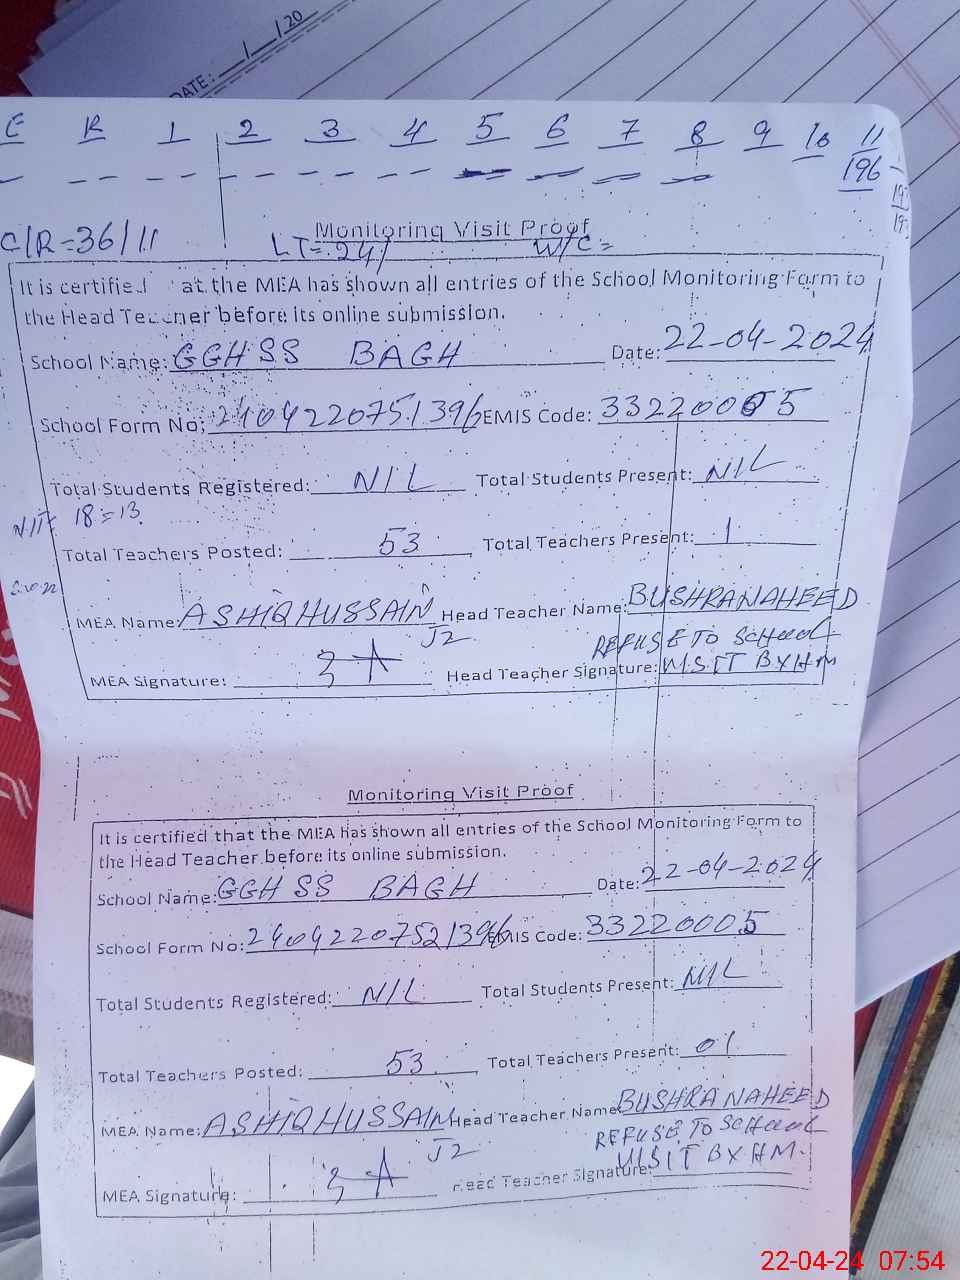 DATE: __/__/20
E R 1 2 3 4 5 6 7 8 9 10 11
196
C/R=36/11
Monitoring Visit Proof
LT=.24/ W/C=
It is certified at the MEA has shown all entries of the School Monitoring Form to
the Head Teacher before its online submission.
School Name: GGHSS BAGH Date: 22-04-2024
School Form No: 2404220751396 EMIS Code: 332200055
Total Students Registered: NIL Total Students Present: NIL
18=13
Total Teachers Posted: 53 Total Teachers Present: 1
MEA Name: ASHIQHUSSAIN Head Teacher Name: BUSHRANAHEED
J2 REFUSE TO SCHOOL
MEA Signature: Head Teacher Signature: VISIT BY HM
Monitoring Visit Proof
It is certified that the MEA has shown all entries of the School Monitoring Form to
the Head Teacher before its online submission.
School Name: GGHSS BAGH Date: 22-04-2024
School Form No: 24042207521396 EMIS Code: 33220005
Total Students Registered: NIL Total Students Present: NIL
Total Teachers Posted: 53 Total Teachers Present: 01
MEA Name: ASHIQHUSSAIN Head Teacher Name BUSHRA NAHEED
J2 REFUSE TO SCHOOL
VISIT BY HM.
MEA Signature: Head Teacher Signature:
22-04-24 07:54